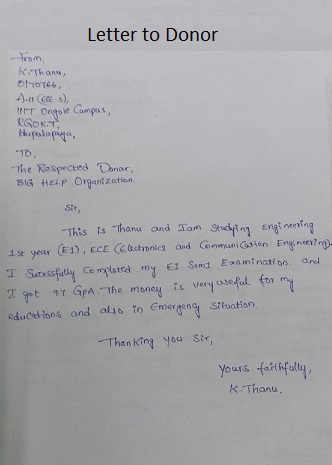 Letter to Donor
From,
K. Thanu,
O170766,
A-11 (ECE-3),
IIIT Ongole Campus,
RGUKT,
To,
The Respected Donar,
BIG HELP Organization.
Sir,
This is Thanu and Iam Studying engineering
1st year (E1), ECE (Electronics and Communication Engineering).
I Sucessfully Completed my E1 Sem1 Examination. and
I got 9.7 GPA. The money is very useful for my
educations and also in Emergency Situation.
Thanking you Sir,
yours faithfully,
K. Thanu.